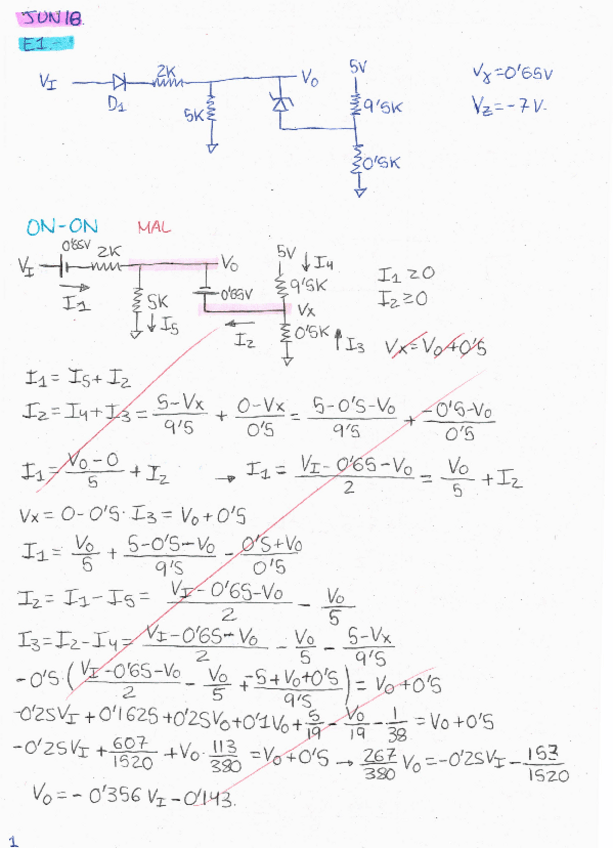 JUN18
E1
VI D1 2K 5K VO 5V 9'5K 0'5K
Vγ=0'65V
VZ=-7V.
ON-ON MAL
VI 0'65V 2K VO 5V ↓I4
I1 5K ↓I5 0'65V I2 9'5K VX 0'5K ↑I3
I1≥0
I2≥0
VX=VO+0'5
I1 = I5+I2
I2=I4+I3= (5-VX)/9'5 + (0-VX)/0'5 = (5-0'5-VO)/9'5 + (-0'5-VO)/0'5
I1 = (VO-0)/5 + I2 → I1 = (VI-0'65-VO)/2 = VO/5 + I2
VX = 0-0'5·I3 = VO+0'5
I1 = VO/5 + (5-0'5-VO)/9'5 - (0'5+VO)/0'5
I2 = I1-I5 = (VI-0'65-VO)/2 - VO/5
I3=I2-I4= (VI-0'65-VO)/2 - VO/5 - (5-VX)/9'5
-0'5·((VI-0'65-VO)/2 - VO/5 + (-5+VO+0'5)/9'5) = VO+0'5
-0'25VI+0'1625+0'25VO+0'1VO+5/19-VO/19-1/38=VO+0'5
-0'25VI+607/1520+VO·113/380=VO+0'5 → 267/380 VO=-0'25VI-153/1520
VO=-0'356VI-0'143.
1